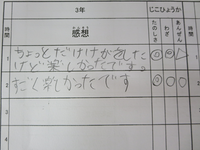 3年
じこひょうか
時間
かんそう
感想
たのしさ
わざ
あんぜん
時間
1
ちょっとだけけがをした
けど楽しかったです。
◎ ◎ △
1
2
すごく楽しかったです
◎ ○ ○
2